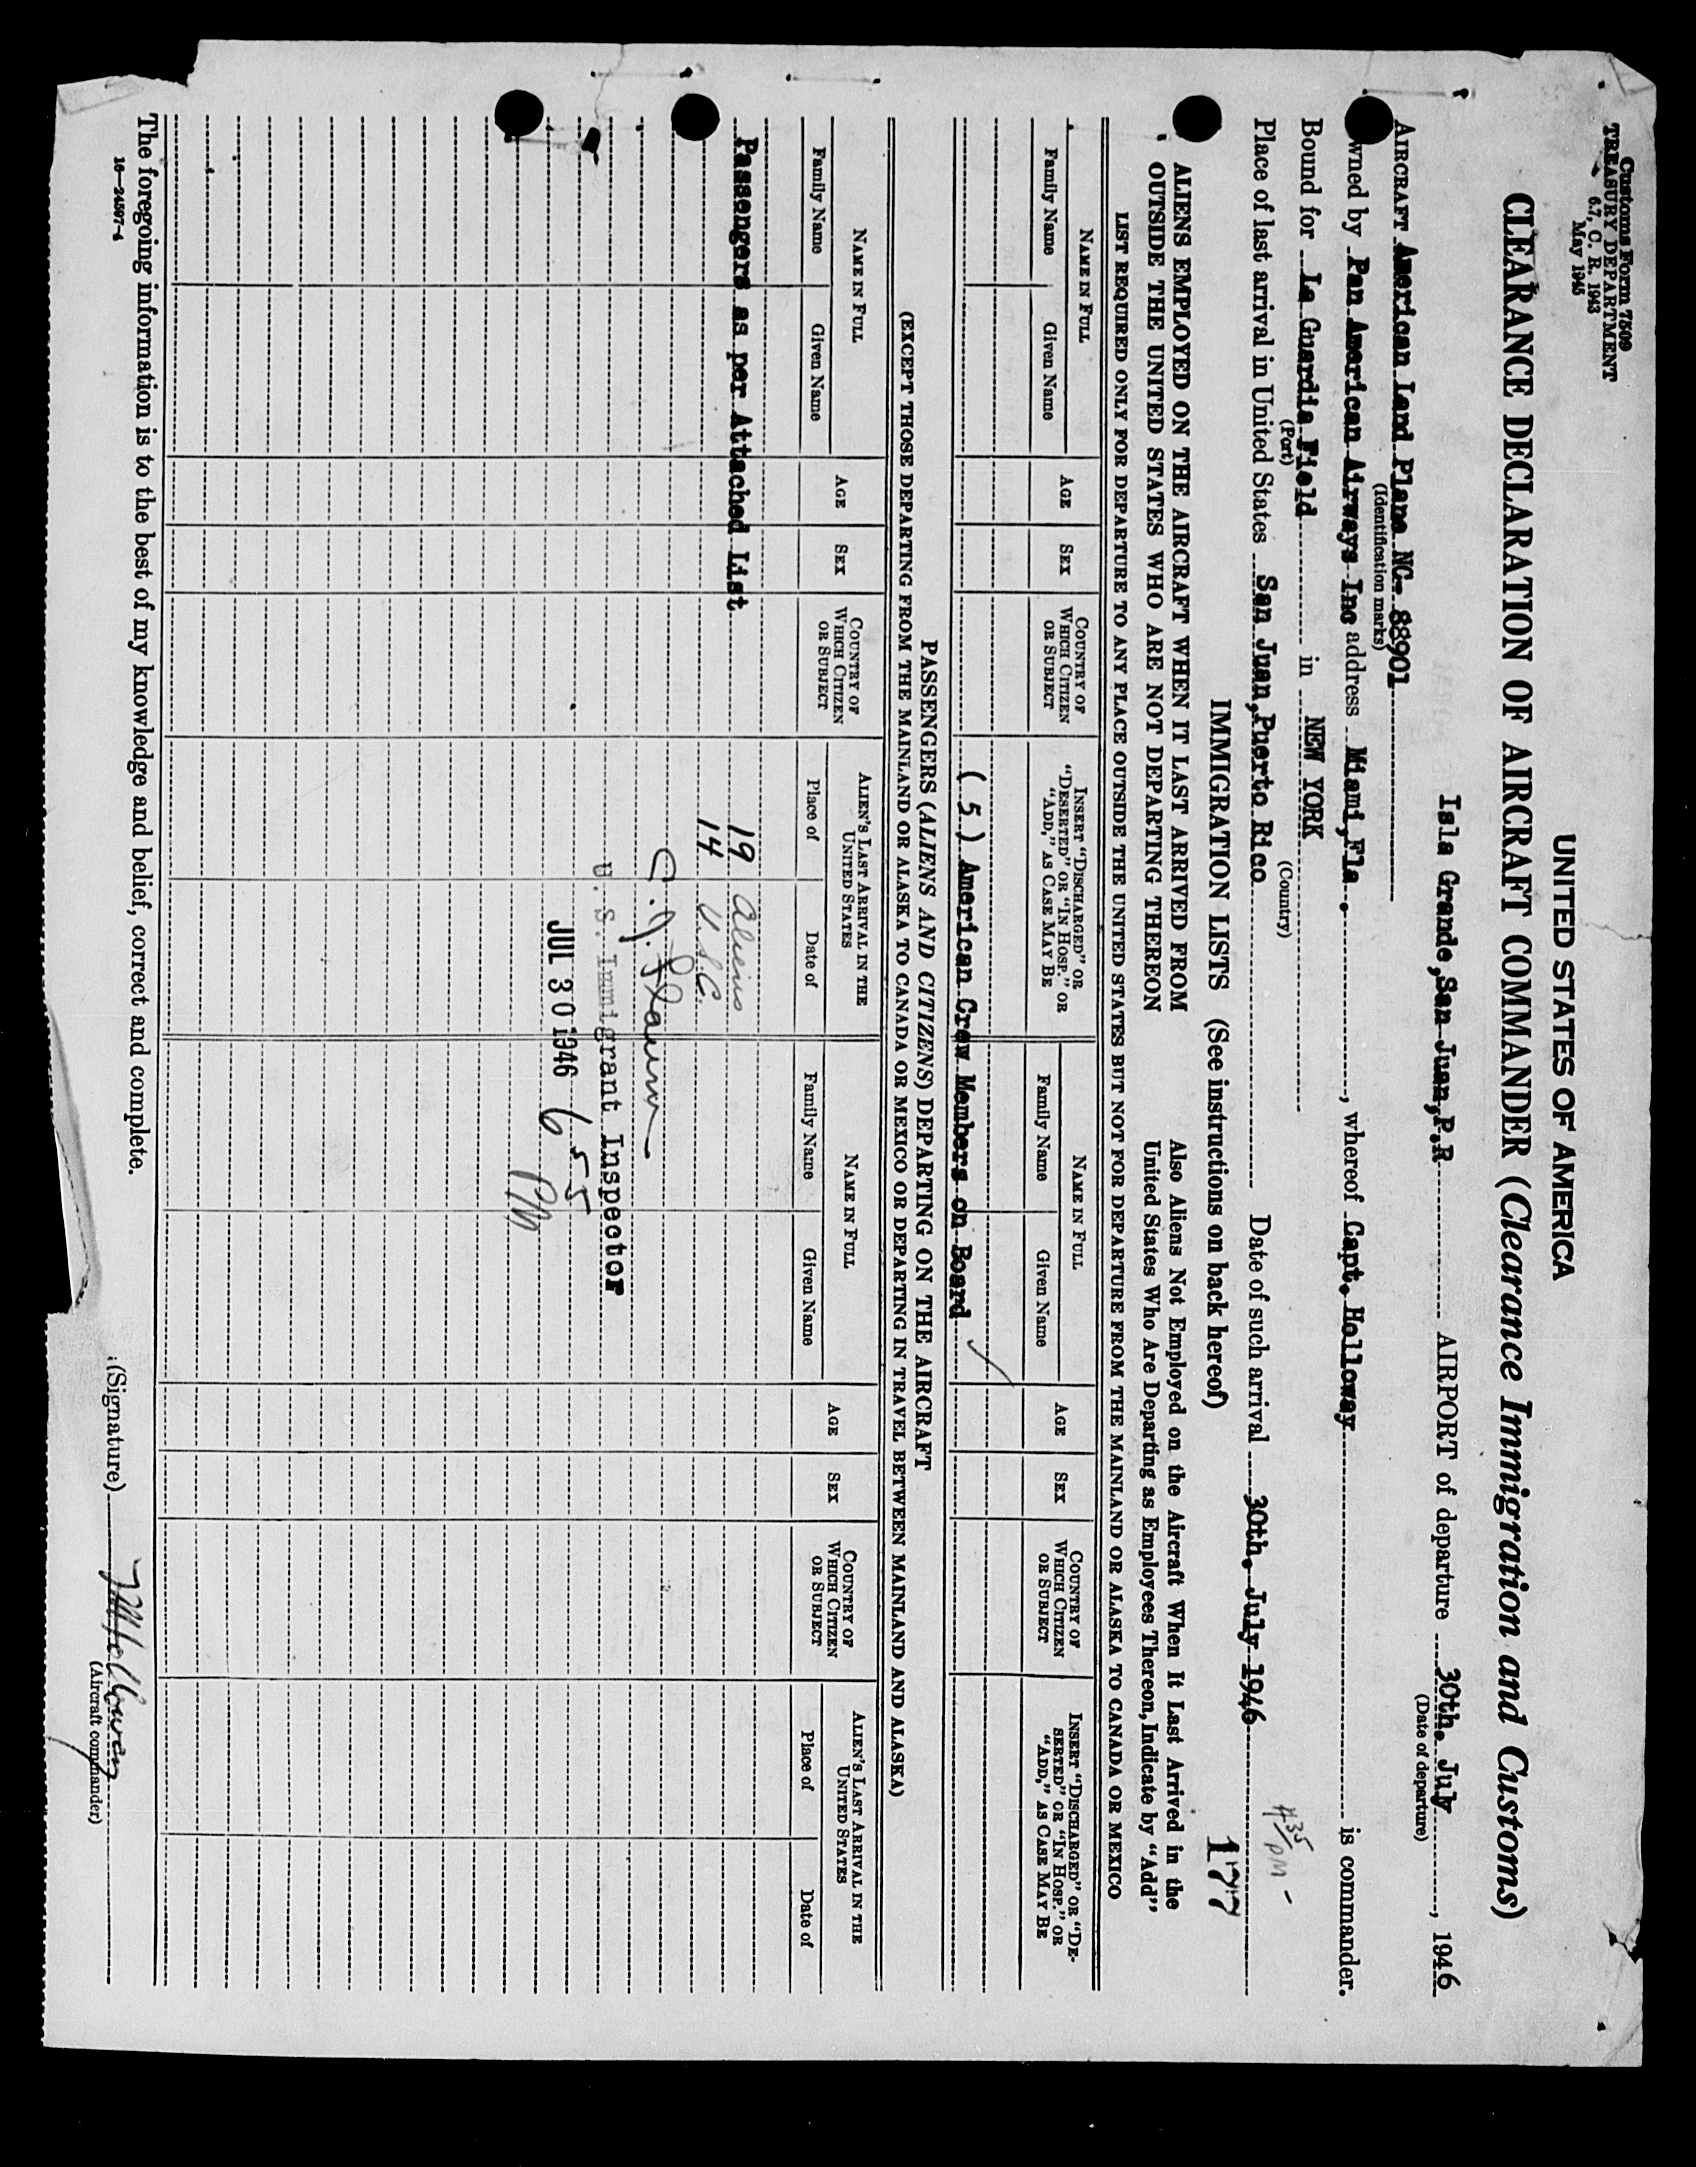 Customs Form 7509
TREASURY DEPARTMENT
6.7, C. R. 1943
May 1945
UNITED STATES OF AMERICA
CLEARANCE DECLARATION OF AIRCRAFT COMMANDER (Clearance Immigration and Customs)
Isla Grande, San Juan, P.R AIRPORT of departure 30th. July, 1946
(Date of departure)
AIRCRAFT American Land Plane NC- 88901
(Identification marks)
Owned by Pan American Airways Inc address Miami, Fla., whereof Capt. Holloway is commander.
Bound for La Guardia Field in NEW YORK
(Port) (Country)
Place of last arrival in United States San Juan, Puerto Rico Date of such arrival 30th. July 1946
435 PM -
IMMIGRATION LISTS (See instructions on back hereof)
177
ALIENS EMPLOYED ON THE AIRCRAFT WHEN IT LAST ARRIVED FROM OUTSIDE THE UNITED STATES WHO ARE NOT DEPARTING THEREON
Also Aliens Not Employed on the Aircraft When It Last Arrived in the United States Who Are Departing as Employees Thereon, Indicate by "Add"
LIST REQUIRED ONLY FOR DEPARTURE TO ANY PLACE OUTSIDE THE UNITED STATES BUT NOT FOR DEPARTURE FROM THE MAINLAND OR ALASKA TO CANADA OR MEXICO
NAME IN FULL
Family Name Given Name
AGE
SEX
COUNTRY OF WHICH CITIZEN OR SUBJECT
INSERT "DISCHARGED" OR "DESERTED" OR "IN HOSP." OR "ADD," AS CASE MAY BE
NAME IN FULL
Family Name Given Name
AGE
SEX
COUNTRY OF WHICH CITIZEN OR SUBJECT
INSERT "DISCHARGED" OR "DESERTED" OR "IN HOSP." OR "ADD," AS CASE MAY BE
( 5 ) American Crew Members on Board
PASSENGERS (ALIENS AND CITIZENS) DEPARTING ON THE AIRCRAFT
(EXCEPT THOSE DEPARTING FROM THE MAINLAND OR ALASKA TO CANADA OR MEXICO OR DEPARTING IN TRAVEL BETWEEN MAINLAND AND ALASKA)
NAME IN FULL
Family Name Given Name
AGE
SEX
COUNTRY OF WHICH CITIZEN OR SUBJECT
ALIEN'S LAST ARRIVAL IN THE UNITED STATES
Place of Date of
NAME IN FULL
Family Name Given Name
AGE
SEX
COUNTRY OF WHICH CITIZEN OR SUBJECT
ALIEN'S LAST ARRIVAL IN THE UNITED STATES
Place of Date of
Passengers as per Attached List
19 Aliens
14 U.S.C.
U. S. Immigrant Inspector
JUL 30 1946 6 55 PM
The foregoing information is to the best of my knowledge and belief, correct and complete.
16—24597-4
(Signature) Holloway
(Aircraft commander)